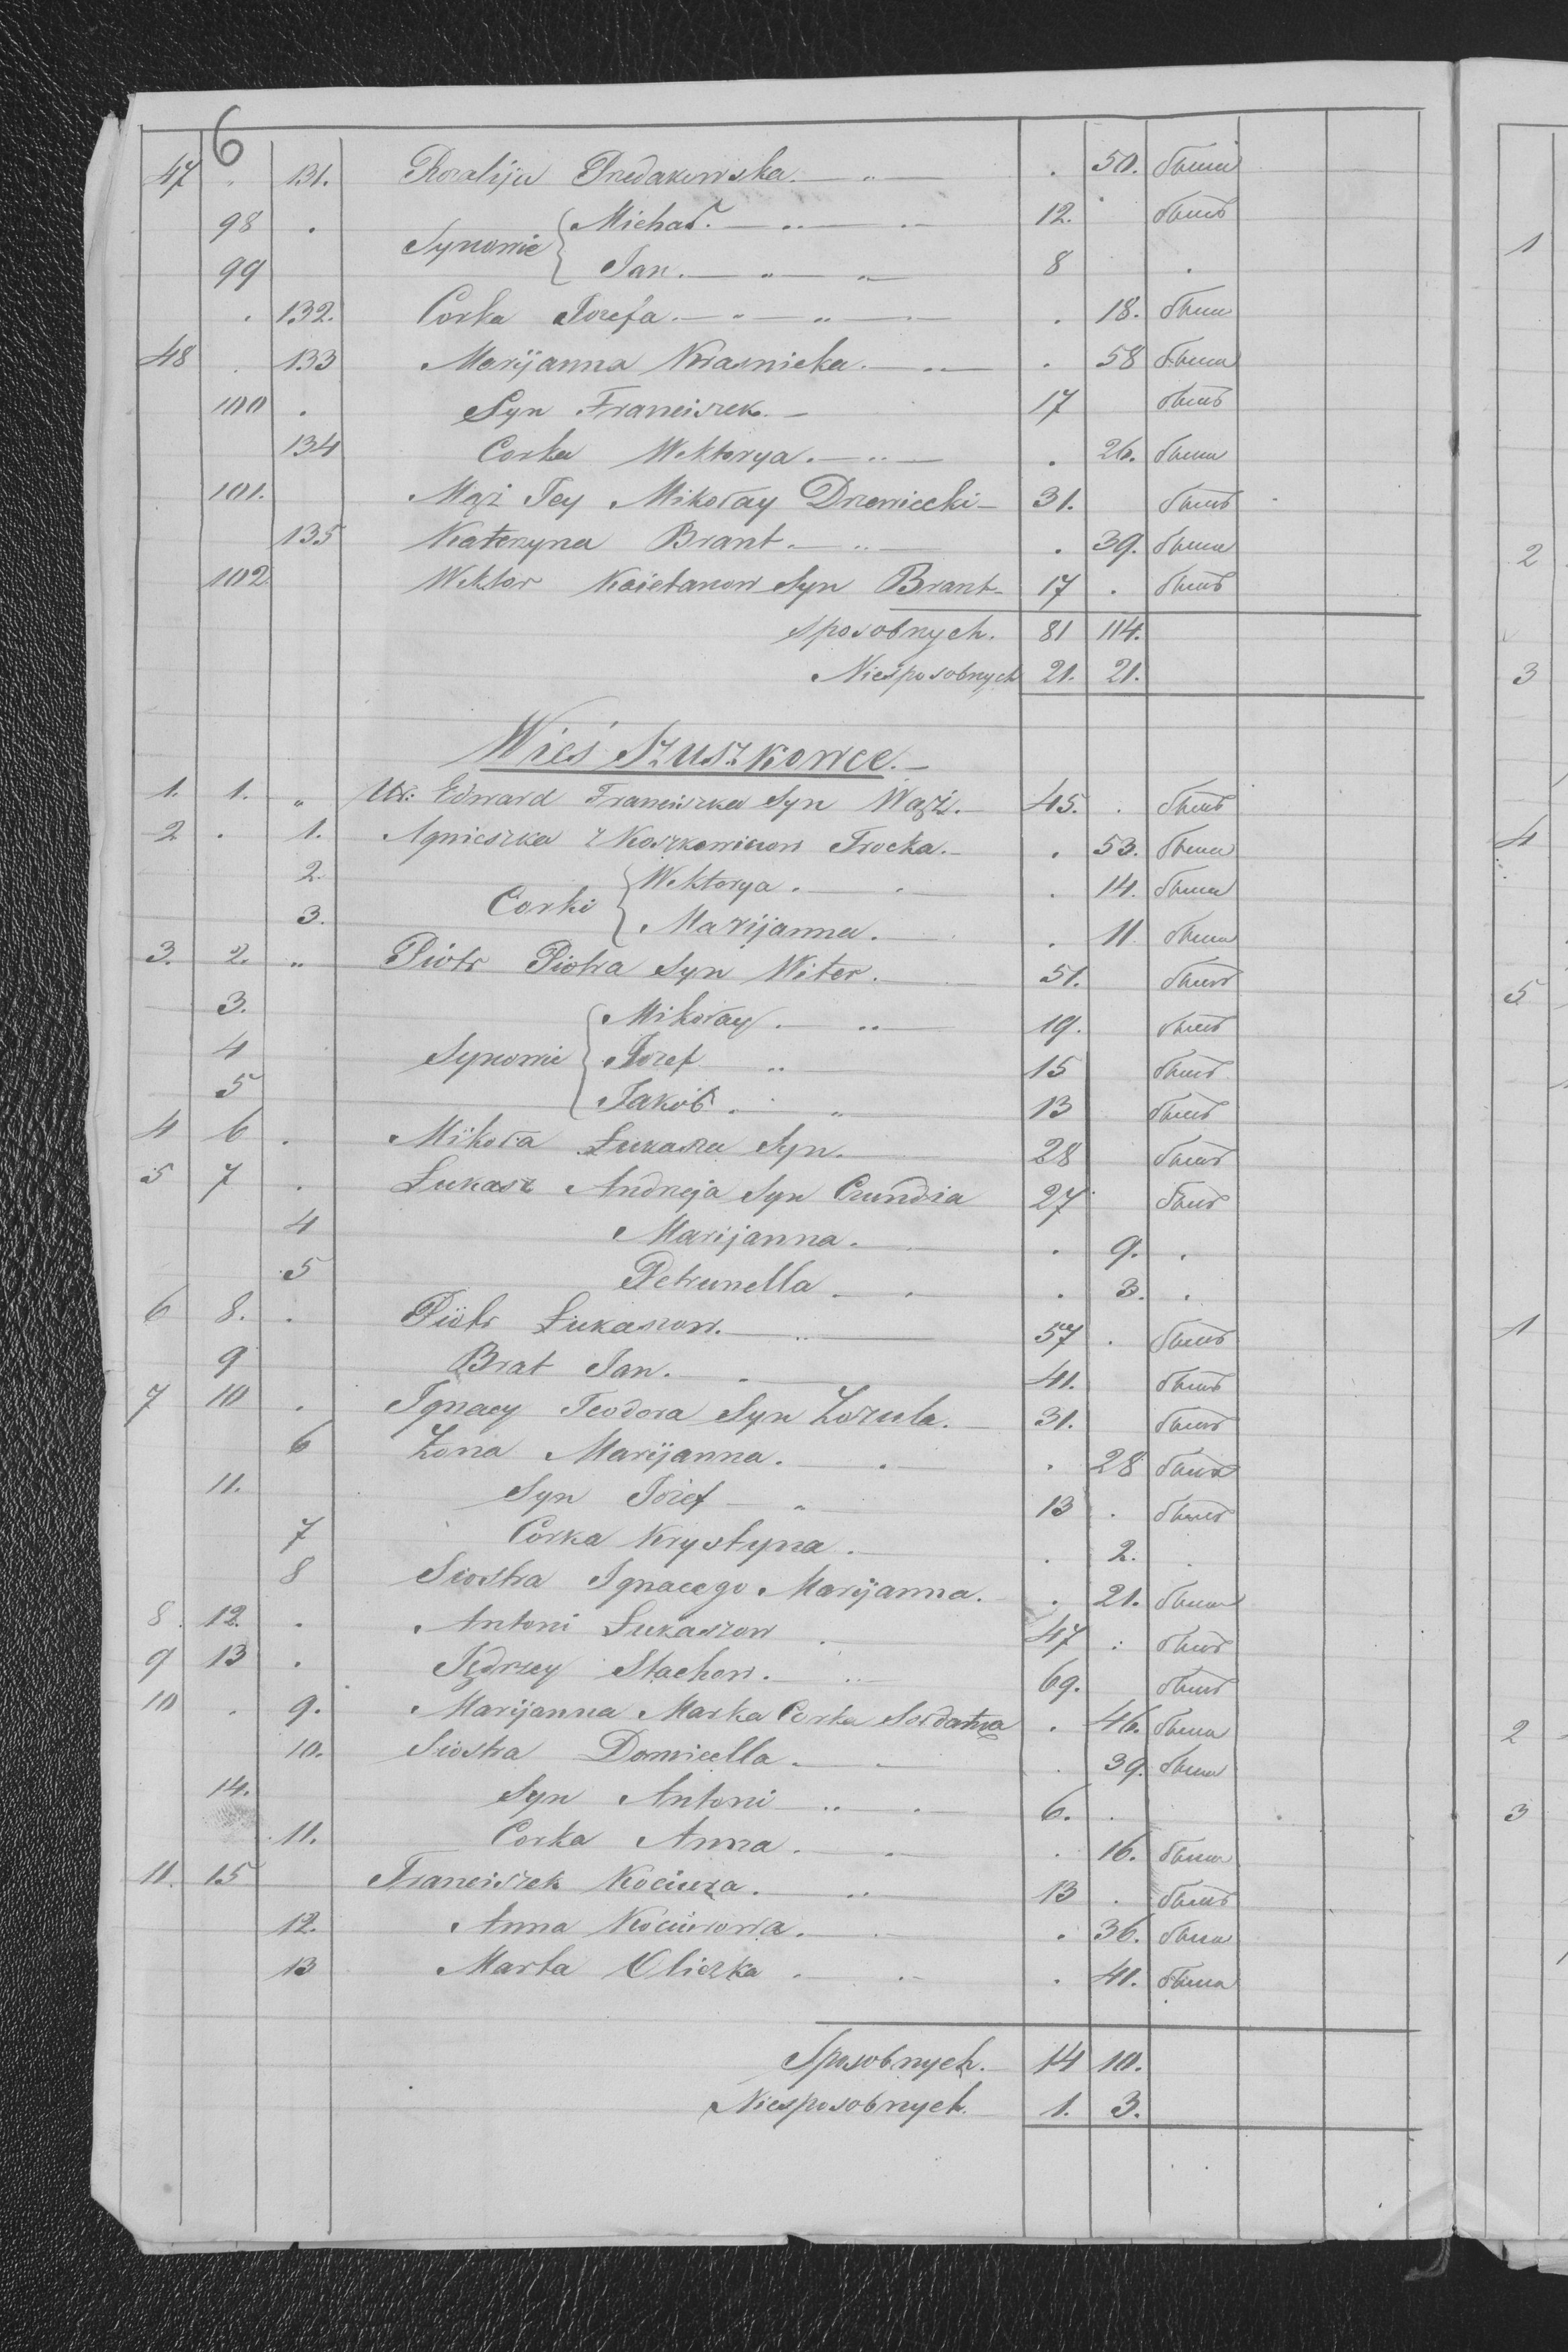 6
47 . 131. Rozalija Przedakowska . 50. была
98 . Synowie Michał. 12. былъ
99 Jan. 8 .
. 132. Corka Jozefa . 18. была
48 . 133 Marijanna Krasnicka . 58 была
100 . Syn Franciszek 17 былъ
134 Corka Wiktorya . 26. была
101. Mąż Jey Mikołay Drzewiecki 31. былъ
135 Katerzyna Brant . 39. была
102 Wiktor Kaietanow Syn Brant 17 . былъ
Sposobnych. 81 114.
Niesposobnych 21. 21.
Wieś Szuszkowce.
1. 1. „ Ur: Edward Franciszka Syn Wąż. 45. . былъ
2 . 1. Agnieszka z Koszkowicow Trocka. . 53. была
2. Corki Wiktorya . . 14. была
3. Marijanna. . 11 была
3. 2. „ Piotr Piotra Syn Witer. 51. былъ
3. Mikołay . 19. былъ
4 Synowie Jozef 15 былъ
5 Jakób . 13 былъ
4 6 . Mikoła Łukasza Syn. 28 былъ
5 7 . Łukasz Andreja Syn 27 былъ
4 Marijanna. . 9. .
5 Petrunella . 3. .
6 8. . Piotr Łukaszow. 57 . былъ
9 Brat Jan. 41. былъ
7 10 . Ignacy Teodora Syn Zozula. 31. былъ
6 Żona Marijanna. . 28 была
11. Syn Józef 13 . былъ
7 Corka Krystyna. . 2. .
8 Siostra Ignacego Marijanna. . 21. была
8. 12. . Antoni Łukaszow 47 . былъ
9 13 . Jędrzey Stachow. 69. былъ
10 . 9. Marijanna Marka Corka Sołdatka . 46. была
10. Siostra Domicella . 39. была
14. Syn Antoni 6. .
11. Corka Anna . . 16. была
11. 15 Franciszek Kociuza. 13 . былъ
12. Anna Kociurowa. . 36. была
13 Marta Oliczka . . 41. была
Sposobnych. 14 10.
Niesposobnych. 1. 3.
1
2
3
4
5
1
2
3